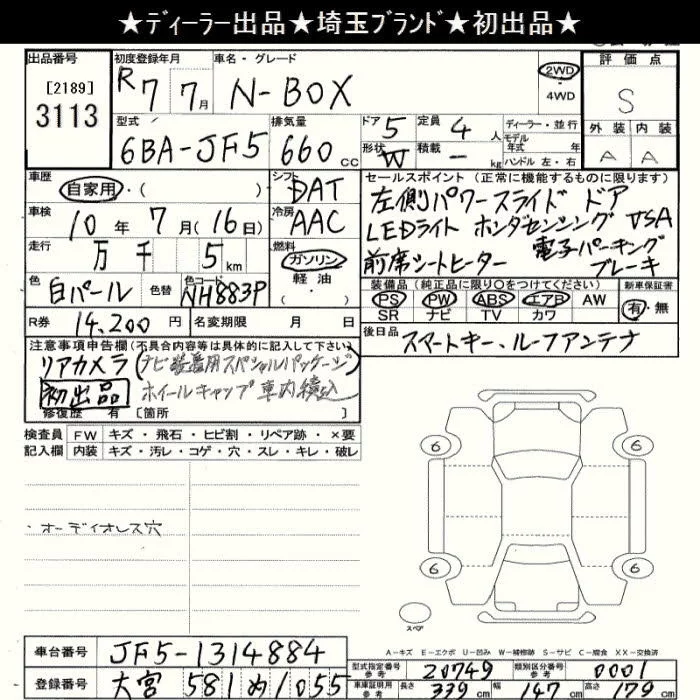 ★ディーラー出品★埼玉ブランド★初出品★
出品番号
[2189]
3113
初度登録年月
R7 7月
車名・グレード
N-BOX
2WD
・
4WD
評価点
S
外装 内装
A A
型式
6BA-JF5
排気量
660cc
ドア 5
形状 W
定員 4人
積載 - kg
ディーラー・並行
モデル
年式 年
ハンドル 左・右
車歴
自家用・( )
シフト
DAT
車検
10年7月(16日)
冷房
AAC
走行
万 千 5km
燃料
ガソリン
軽油
( )
色
白パール
色替
色コード
NH883P
R券 14,200円
名変期限 月 日
セールスポイント (正常に機能するものに限ります)
左側パワースライドドア
LEDライト ホンダセンシング VSA
前席シートヒーター 電子パーキング
ブレーキ
装備品 (純正品に限り○をつけてください)
PS PW ABS エアB AW
SR ナビ TV カワ
新車保証書
有・無
後日品
スマートキー、ルーフアンテナ
注意事項申告欄(不具合内容等は具体的に記入して下さい)
リアカメラ(ナビ装着用スペシャルパッケージ)
初出品 ホイールキャップ車内積込
修復歴 有 [箇所 ]
検査員 FW キズ・飛石・ヒビ割・リペア跡・×要
記入欄 内装 キズ・汚レ・コゲ・穴・スレ・キレ・破レ
・オーディオレス穴
6 6
6 6
スペア
A−キズ E−エクボ U−凹み W−補修跡 S−サビ C−腐食 XX−交換済
車台番号 JF5-1314884
登録番号 大宮 581 め 1055
型式指定番号
参考
20749
類別区分番号
参考
0001
車庫証明用
参考
長さ 339cm 幅 147cm 高さ 179cm